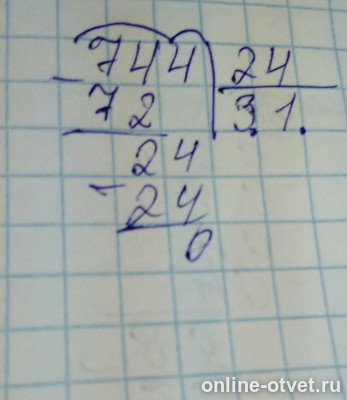 744 24
- 72 31
24
- 24
0
online-otvet.ru